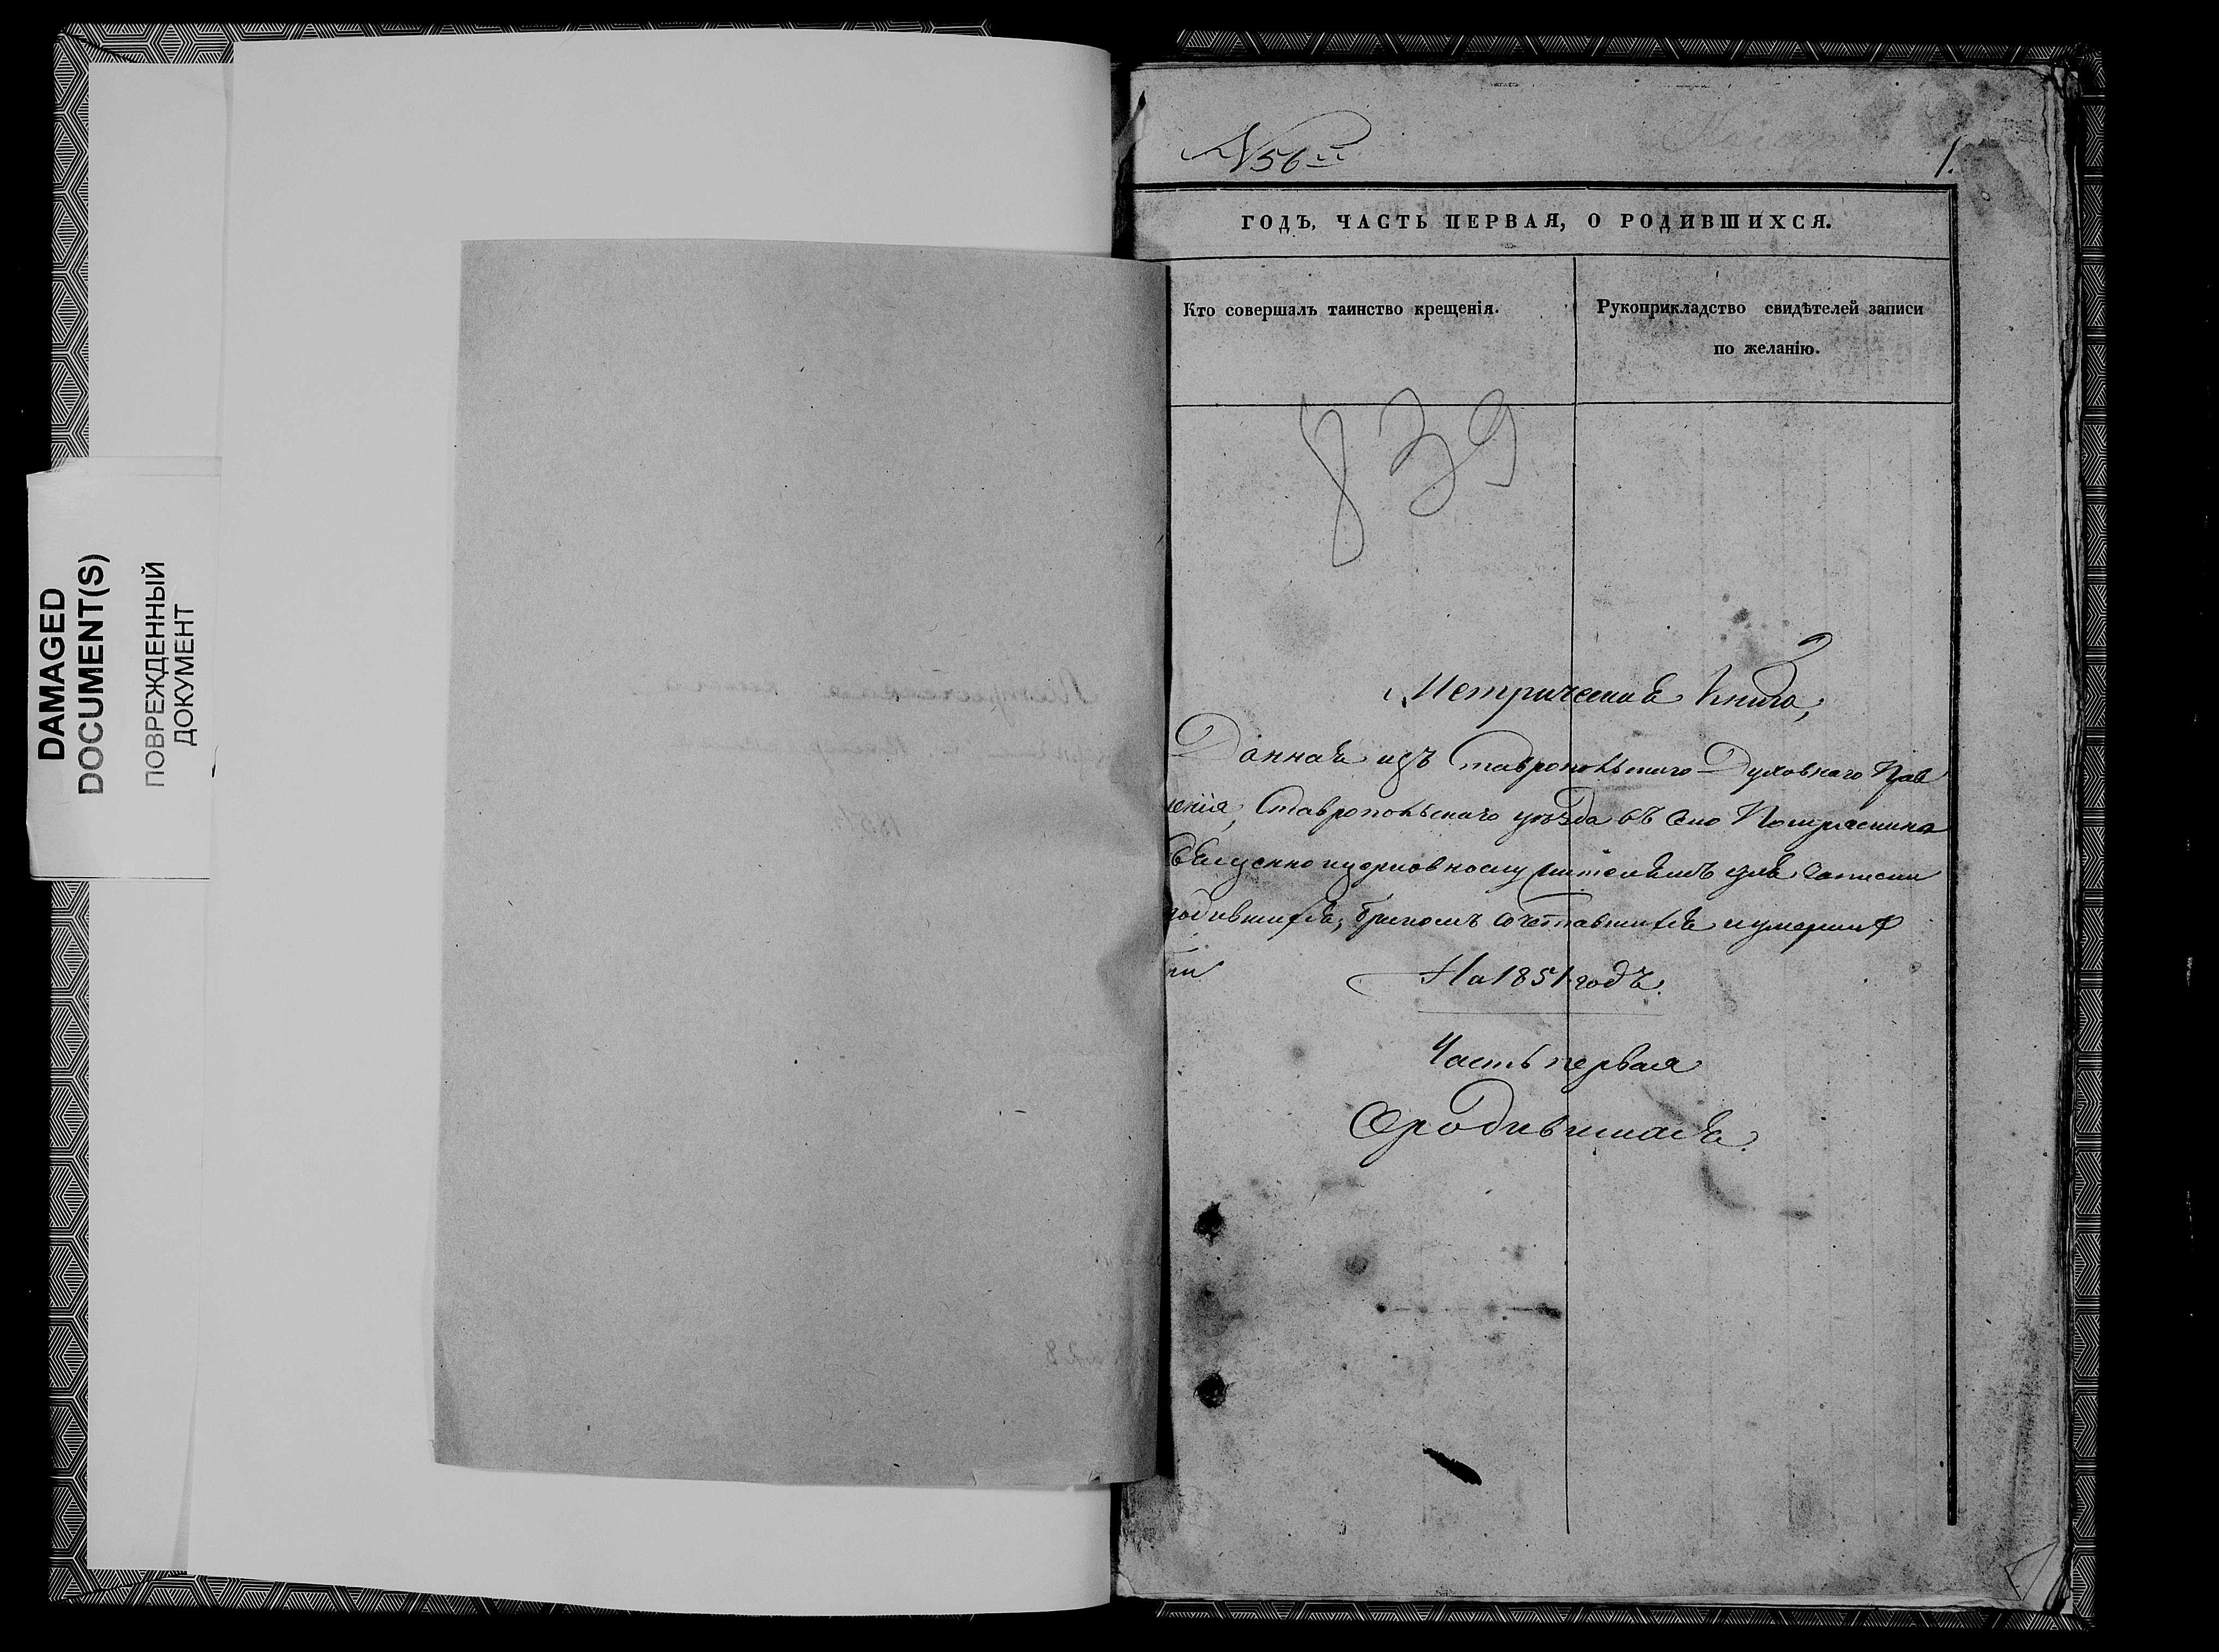 DAMAGED
DOCUMENT(S)
ПОВРЕЖДЕННЫЙ
ДОКУМЕНТ
N 56й
1.
ГОДЪ, ЧАСТЬ ПЕРВАЯ, О РОДИВШИХСЯ.
Кто совершалъ таинство крещенія.
Рукоприкладство свидѣтелей записи
по желанію.
839
Метрическая Книга,
Данная изъ Ставропольскаго Духовнаго Прав
ленія, Ставропольскаго уѣзда въ село
Священноцерковнослужителямъ для записи
родившихся, бракомъ сочетавшихся и умерших
На 1851 годъ.
Часть первая
О родившихся.